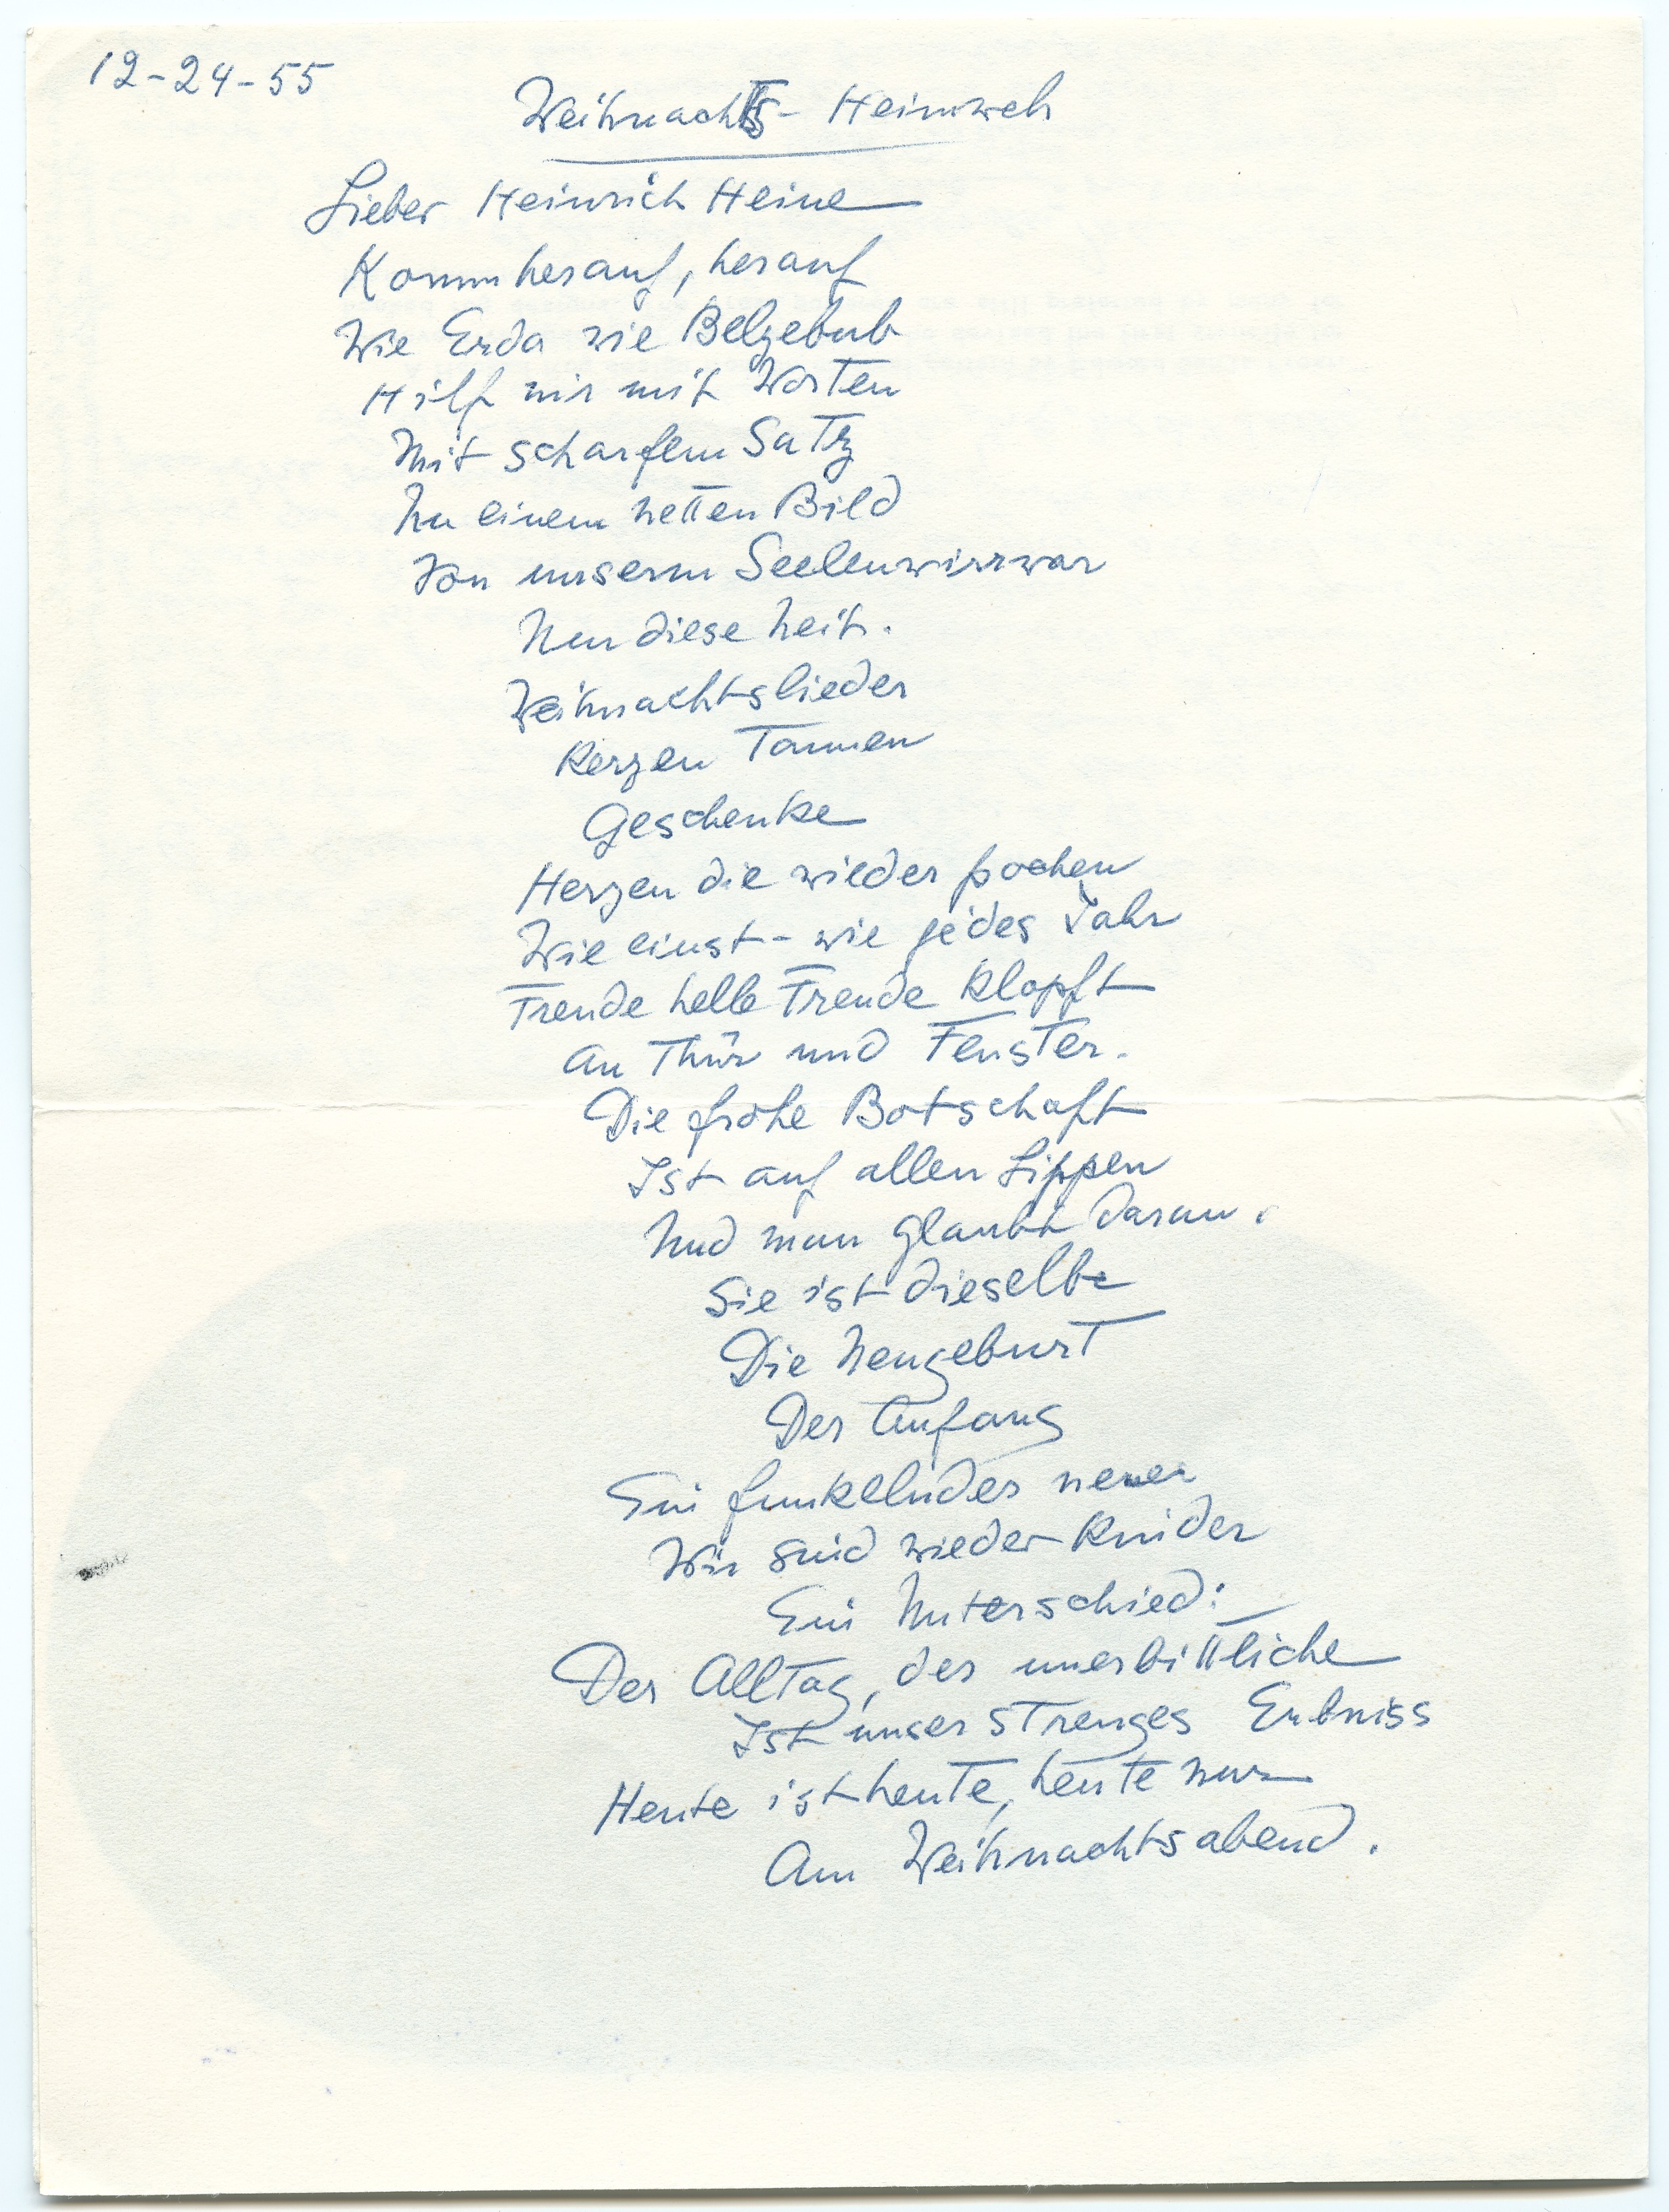 12-24-55
Weihnachts- Heimweh
Lieber Heinrich Heine
Komm herauf, herauf
Wie Erda wie Belzebub
Hilf mir mit Worten
Mit scharfem Satz
Zu einem netten Bild
Von unserm Seelenwirrwar
Um diese Zeit.
Weihnachtslieder
Kerzen Tannen
Geschenke
Herzen die wieder pochen
Wie einst - wie jedes Jahr
Freude helle Freude klopft
An Thür und Fenster.
Die frohe Botschaft
Ist auf allen Lippen
Und man glaubt daran.
Sie ist dieselbe
Die Neugeburt
Der Anfang
Ein funkelnder neuer
Wir sind wieder Kinder
Ein Unterschied:
Der Alltag, der unerbittliche
Ist unser strenges Erbniss
Heute ist heute, heute nur
Am Weihnachtsabend.